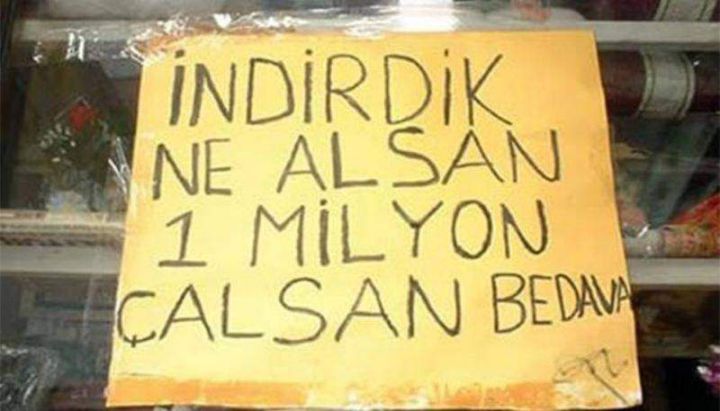 İNDİRDİK
NE ALSAN
1 MİLYON
ÇALSAN BEDAVA